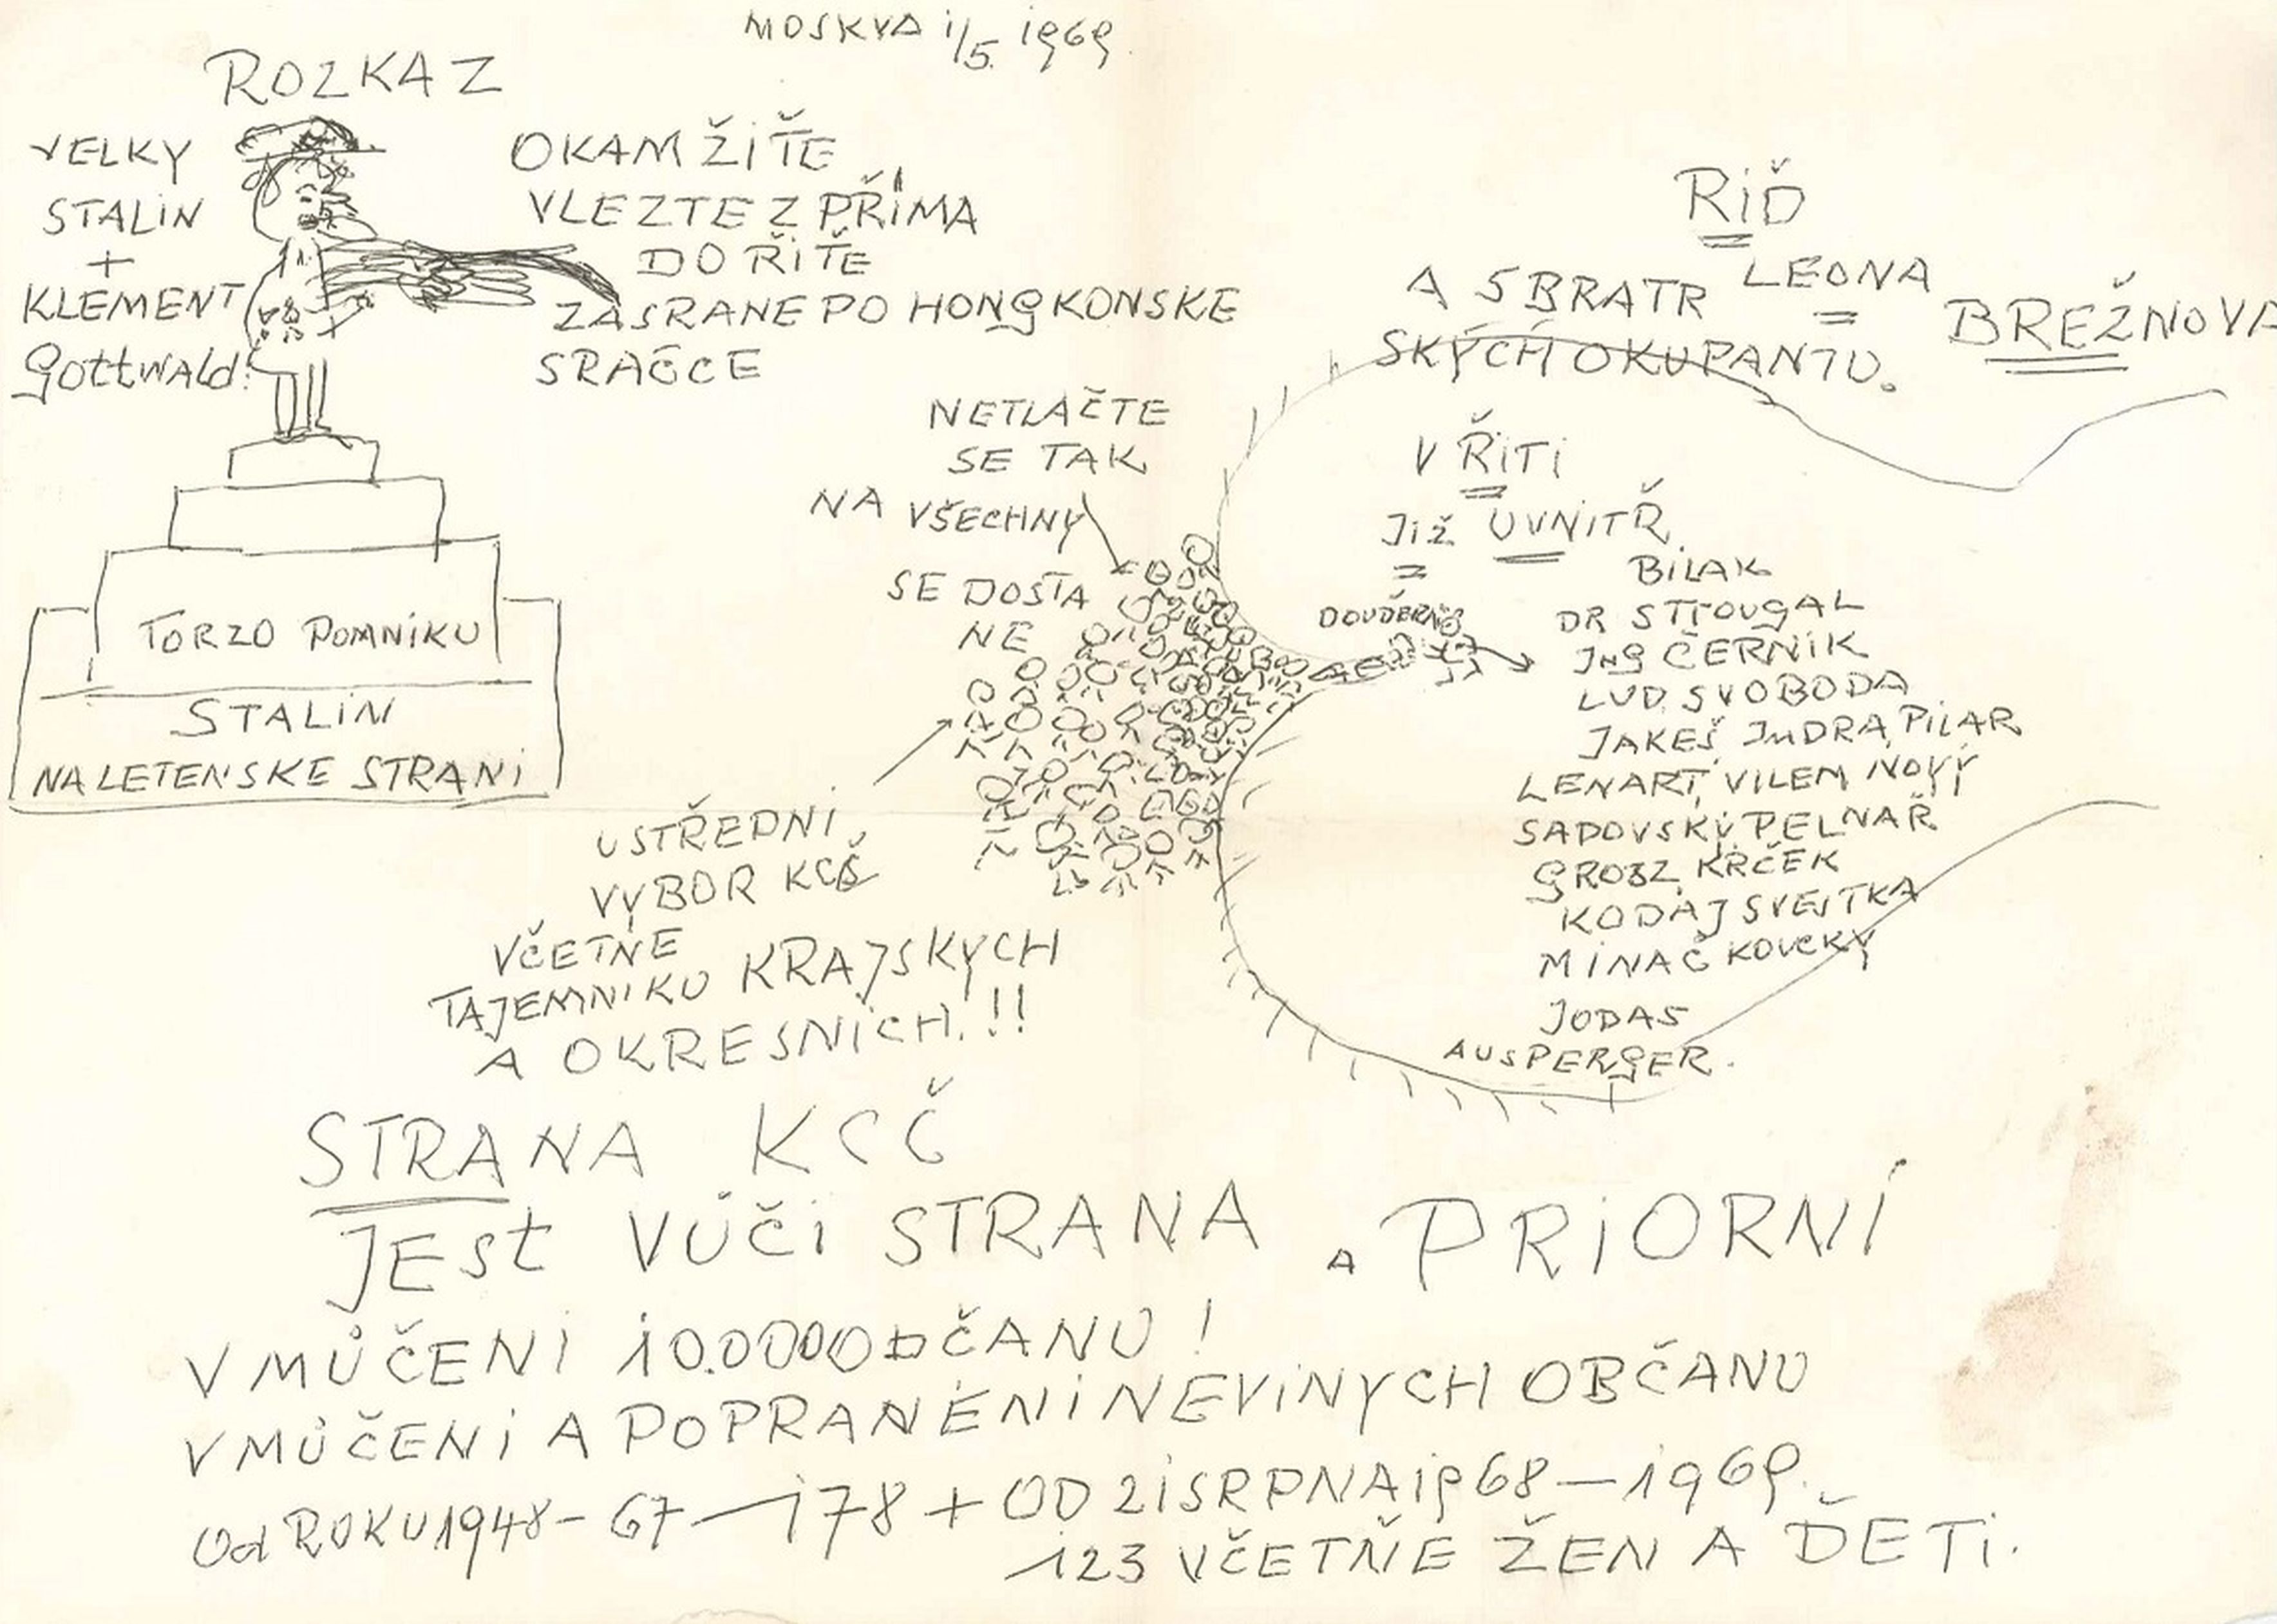 MOSKVA 1/5. 1969.
ROZKAZ
VELKY
STALIN
+
KLEMENT
Gottwald:
OKAMŽIŤE
VLEZTE Z PŘÍMA
DO ŘIŤE
ZASRANE PO HONgKONSKE
SRAČCE
RIĎ
LEONA
BREŽNOVA
A 5 BRATR
SKÝCH OKUPANTU.
NETLAČTE
SE TAK
NA VŠECHNY
SE DOSTA
NE
V ŘITI
JIŽ UVNITŘ.
BILAK
DR STROUgAL
INg ČERNIK
LUD. SVOBODA
JAKEŠ, INDRA, PILAR
LENART, VILEM NOVÝ
SADOVSKÝ, PELNAŘ
GROSZ, KRČEK
KODAJ SVESTKA
MINAČ KOUCKY
JODAS
AUSPERGER.
TORZO POMNIKU
STALIN
NA LETENSKE STRANI
USTŘEDNI
VYBOR KCŠ
VČETNE
TAJEMNIKU KRAJSKYCH
A OKRESNICH.!!
STRANA KCČ
JEST VŮČI STRANA A PRIORNÍ
V MŮČENI 10.0000 OČANU!
V MŮČENI A POPRANÉNI NEVINYCH OBČANU
Od ROKU 1948 - 67 — 178 + OD 21 SRPNA 1968 — 1969.
123 VČETŇE ŽEN A ĎETI.